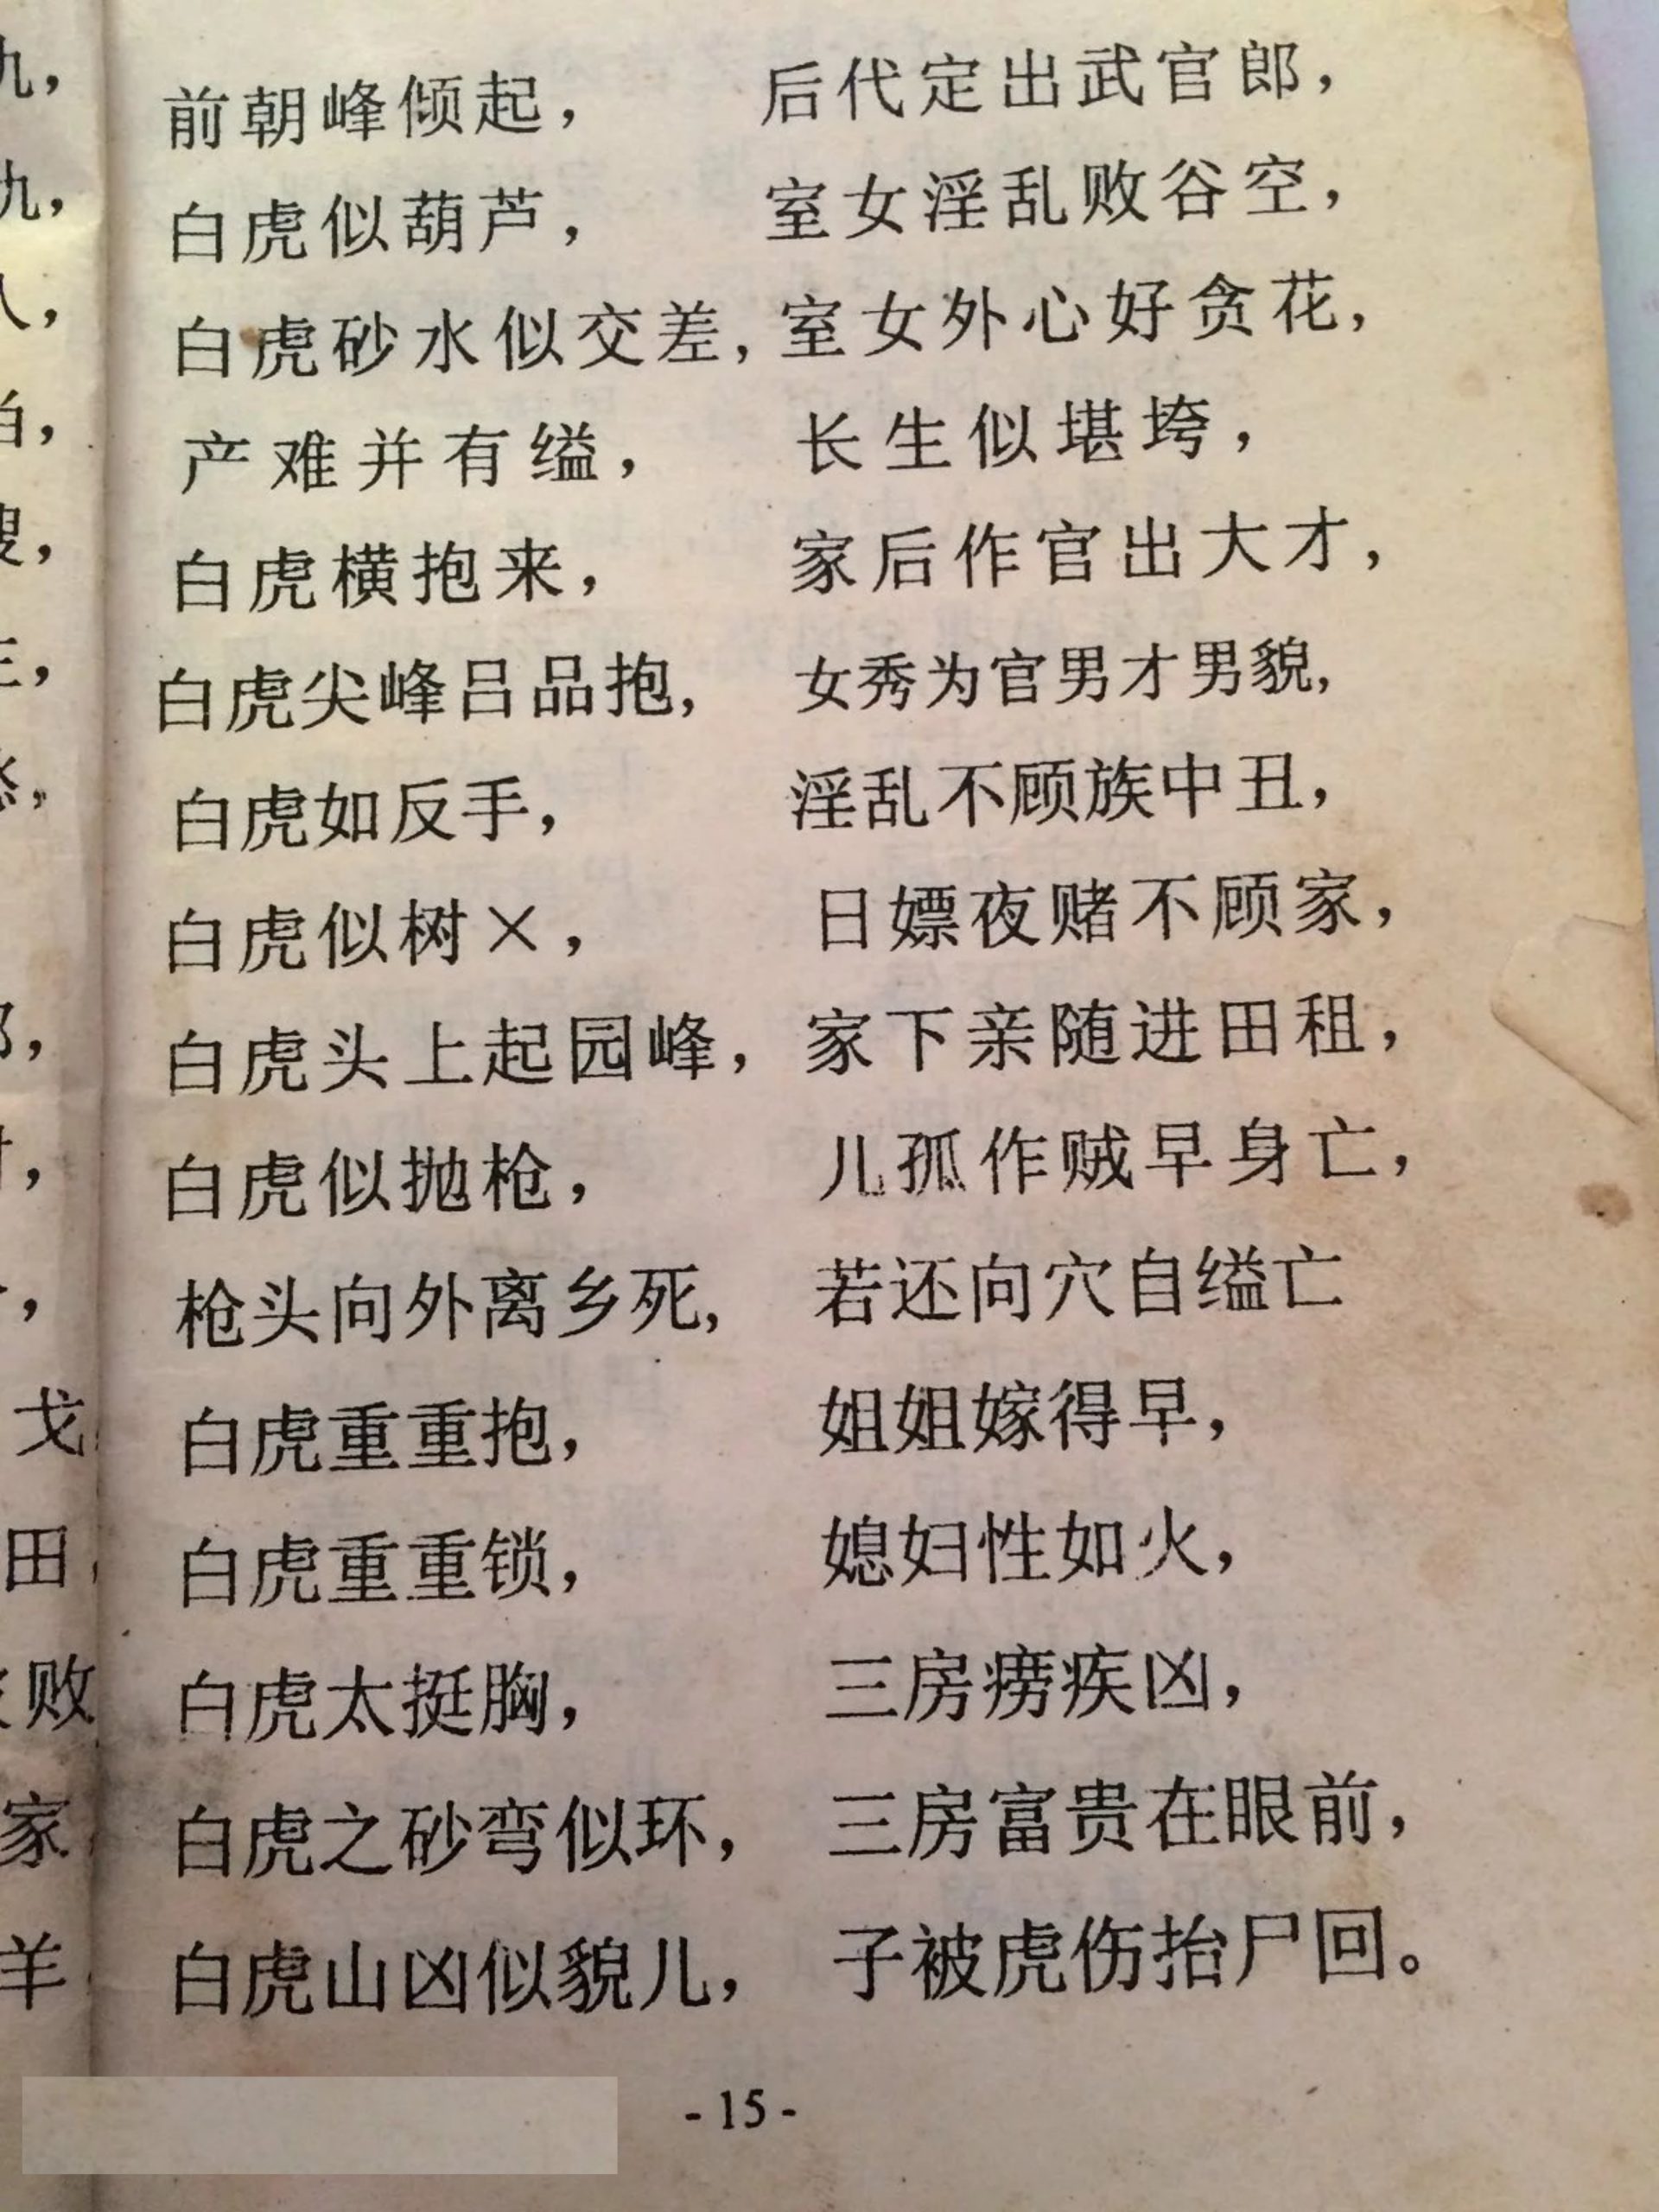 前朝峰倾起， 后代定出武官郎，
白虎似葫芦， 室女淫乱败谷空，
白虎砂水似交差，室女外心好贪花，
产难并有缢， 长生似堪垮，
白虎横抱来， 家后作官出大才，
白虎尖峰吕品抱， 女秀为官男才男貌，
白虎如反手， 淫乱不顾族中丑，
白虎似树×， 日嫖夜赌不顾家，
白虎头上起园峰， 家下亲随进田租，
白虎似抛枪， 儿孤作贼早身亡，
枪头向外离乡死， 若还向穴自缢亡
白虎重重抱， 姐姐嫁得早，
白虎重重锁， 媳妇性如火，
白虎太挺胸， 三房痨疾凶，
白虎之砂弯似环， 三房富贵在眼前，
白虎山凶似貌儿， 子被虎伤抬尸回。
- 15 -
九，
仇，
人，
戈
田
败
家
羊